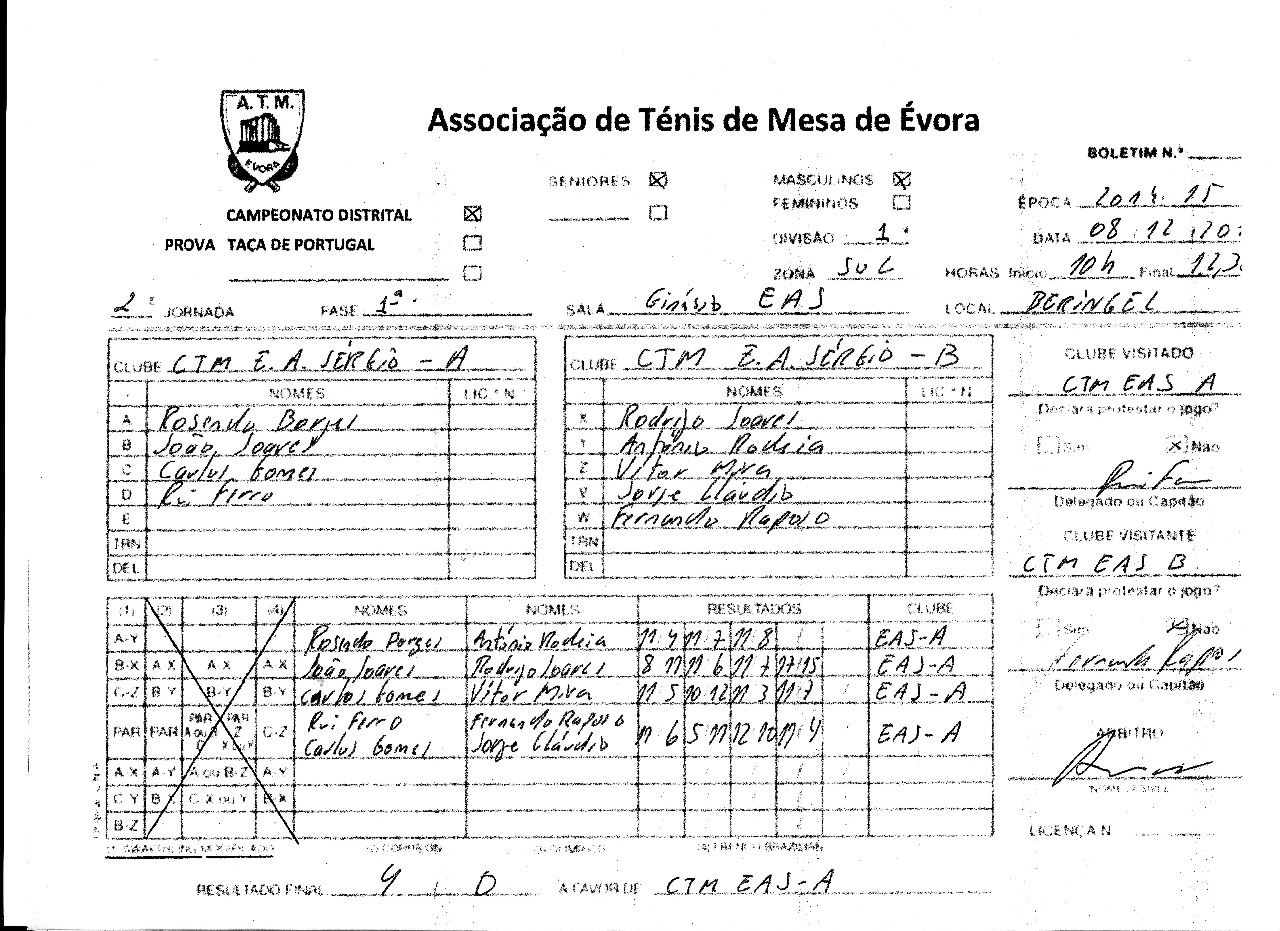 A. T. M.
ÉVORA
Associação de Ténis de Mesa de Évora
BOLETIM N.º
SENIORES ☒ MASCULINOS ☒
FEMININOS ☐
CAMPEONATO DISTRITAL ☒
PROVA TAÇA DE PORTUGAL ☐
ÉPOCA 2014.15
DIVISÃO 1ª DATA 08.12.20
ZONA SUL HORAS Início 10h Final 12,3
2ª JORNADA FASE 1ª SALA EAS LOCAL BERINGEL
CLUBE CTM E. A. SÉRGIO - A
NOMES LIC.ª N.
A Rosendo Borges
B João Soares
C Carlos Gomes
D Rui Ferro
E
TRN
DEL
CLUBE CTM E. A. SÉRGIO - B
NOMES LIC.ª N.
X Rodrigo Soares
Y António Modeia
Z Vítor Mira
V Jorge Cláudio
W Fernando Raposo
TRN
DEL
CLUBE VISITADO
CTM EAS A
Declara protestar o jogo?
☐ Sim ☒ Não
Delegado ou Capitão
CLUBE VISITANTE
CTM EAS B
Declara protestar o jogo?
☐ Sim ☒ Não
Fernando Raposo
Delegado ou Capitão
ÁRBITRO
LICENÇA N.
(1) (2) (3) (4) NOMES NOMES RESULTADOS CLUBE
A-Y Rosendo Borges António Modeia 11 4 11 7 11 8 EAS-A
B-X A-X A-X A-X João Soares Rodrigo Soares 8 11 11 6 11 7 17 15 EAS-A
C-Z B-Y B-Y B-Y Carlos Gomes Vítor Mira 11 5 10 12 11 3 11 7 EAS-A
PAR PAR PAR A ou B C PAR Z X ou Y C-Z Rui Ferro Fernando Raposo 11 6 5 11 12 10 11 4 EAS-A
Carlos Gomes Jorge Cláudio
A-X A-Y A ou B-Z A-Y
C-Y B-X C-X ou Y B-X
B-Z
RESULTADO FINAL 4 / 0 A FAVOR DE CTM EAS-A